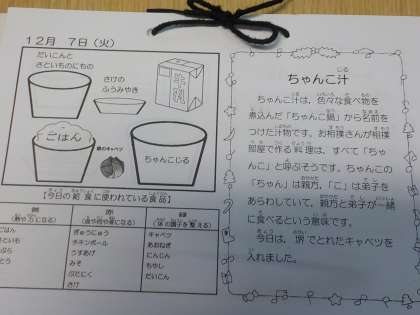 12月 7日(火)
だいこんと
さといものにもの
さけの
ふうみやき
ごはん
堺のキャベツ
ちゃんこじる
【今日の給食に使われている食品】
赤
緑
ごはん
ぎゅうにゅう
チキンボール
うすあげ
みそ
ぶたにく
さけ
キャベツ
あおねぎ
にんじん
もやし
だいこん
ちゃんこ汁
ちゃんこ汁は、色々な食べ物を
煮込んだ「ちゃんこ鍋」から名前を
つけた汁物です。お相撲さんが相撲
部屋で作る料理は、すべて「ちゃ
んこ」と呼ぶそうです。ちゃんこの
「ちゃん」は親方、「こ」は弟子を
あらわしていて、親方と弟子が一緒
に食べるという意味です。
今日は、堺でとれたキャベツを
入れました。